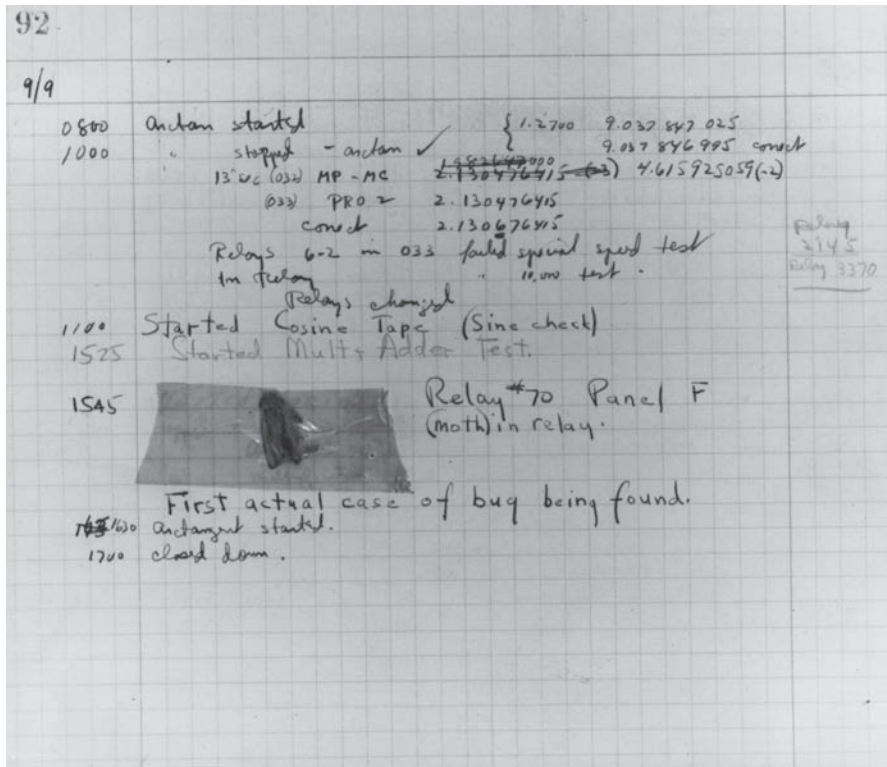 92
9/9
0800 Antan started { 1.2700 9.037 847 025
1000 " stopped - antan ✓ 9.037 846 995 conect
13" sec (032) MP - MC 2.130476415 (-3) 4.615925059(-2)
(033) PRO 2 2.130476415
conect 2.130676415
Relays 6-2 in 033 failed special speed test
In Relay " 10,000 test .
Relay
2145
Relay 3370
Relays changed
1100 Started Cosine Tape (Sine check)
1525 Started Mult + Adder Test.
1545 Relay #70 Panel F
(moth) in relay.
First actual case of bug being found.
1630 antangent started.
1700 closed down.